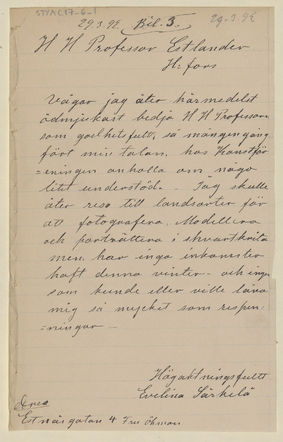 29.3.92. Bil. 3. 29.3.92
H H Professor Estlander
H:fors
Vågar jag åter härmedelst
ödmjukast bedja H H Professorn
som godhetsfullt, så mången gång
fört min talan, hos Konstför-
=eningen anhålla om något
litet understöd. – Jag skulle
åter resa till landsorten för
att fotografera, Modellera
och porträttera i svartkrita
men har inga inkomster
haft denna vinter – och ingen
som kunde eller ville låna
mig så mycket som respen-
=ningar –
Högaktningsfullt
Evelina Särkelä
Adress
Etnäsgatan 4 Fru Öhman